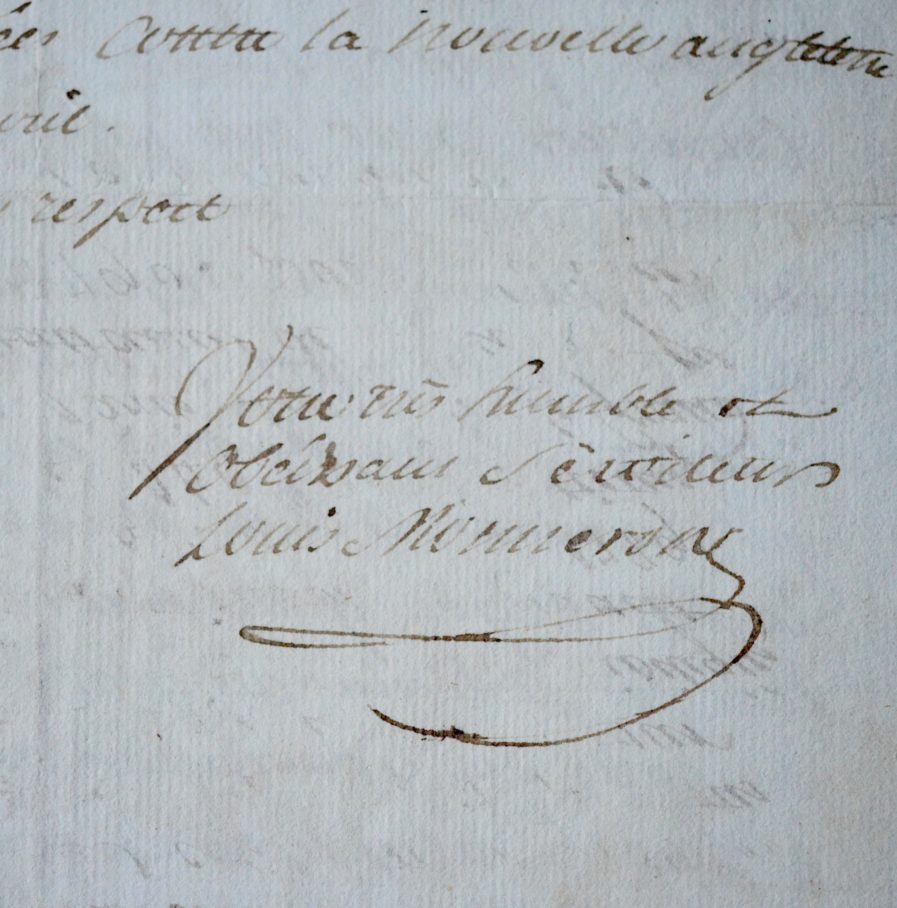 contre la nouvelle angleterre
avril.
respect
Votre très humble et
obeissant Serviteur
Louis Monneron